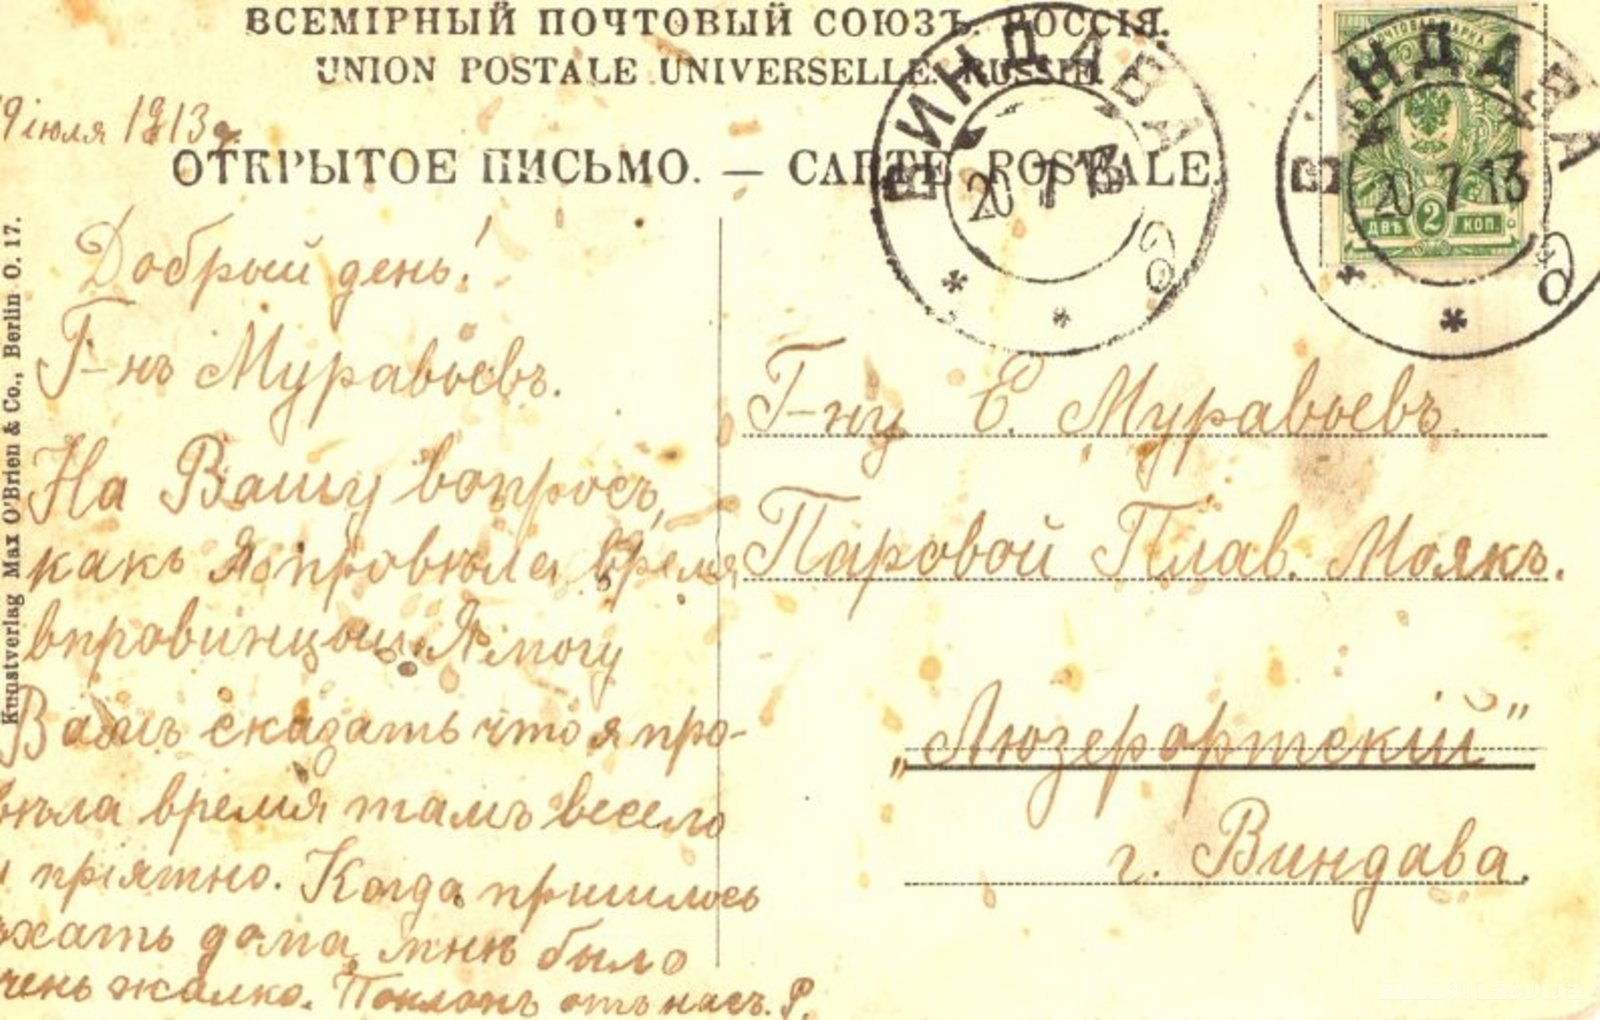 ВСЕМІРНЫЙ ПОЧТОВЫЙ СОЮЗЪ. РОССІЯ.
UNION POSTALE UNIVERSELLE. RUSSIE.
19 іюля 1913 г.
ОТКРЫТОЕ ПИСЬМО. — CARTE POSTALE
ВИНДАВА
20 7 13
б
ПОЧТОВАЯ МАРКА
ДВѢ 2 КОП.
ВИНДАВА
20 7 13
б
Kunstverlag Max O'Brien & Co., Berlin O. 17.
Добрый день!
Г-нъ Муравьевъ.
На Вашу вопросъ,
какъ Я провѣла время
впровинцыи. Я могу
Вамъ сказать что я про-
вѣла время тамъ весело
и пріятно. Когда пришлось
ѣхать дома мнѣ было
очень жалко. Поклонъ отъ насъ. Р.
Г-ну Е. Муравьевъ
Паровой Плав. Маякъ.
„Люзерортскій"
г. Виндава.